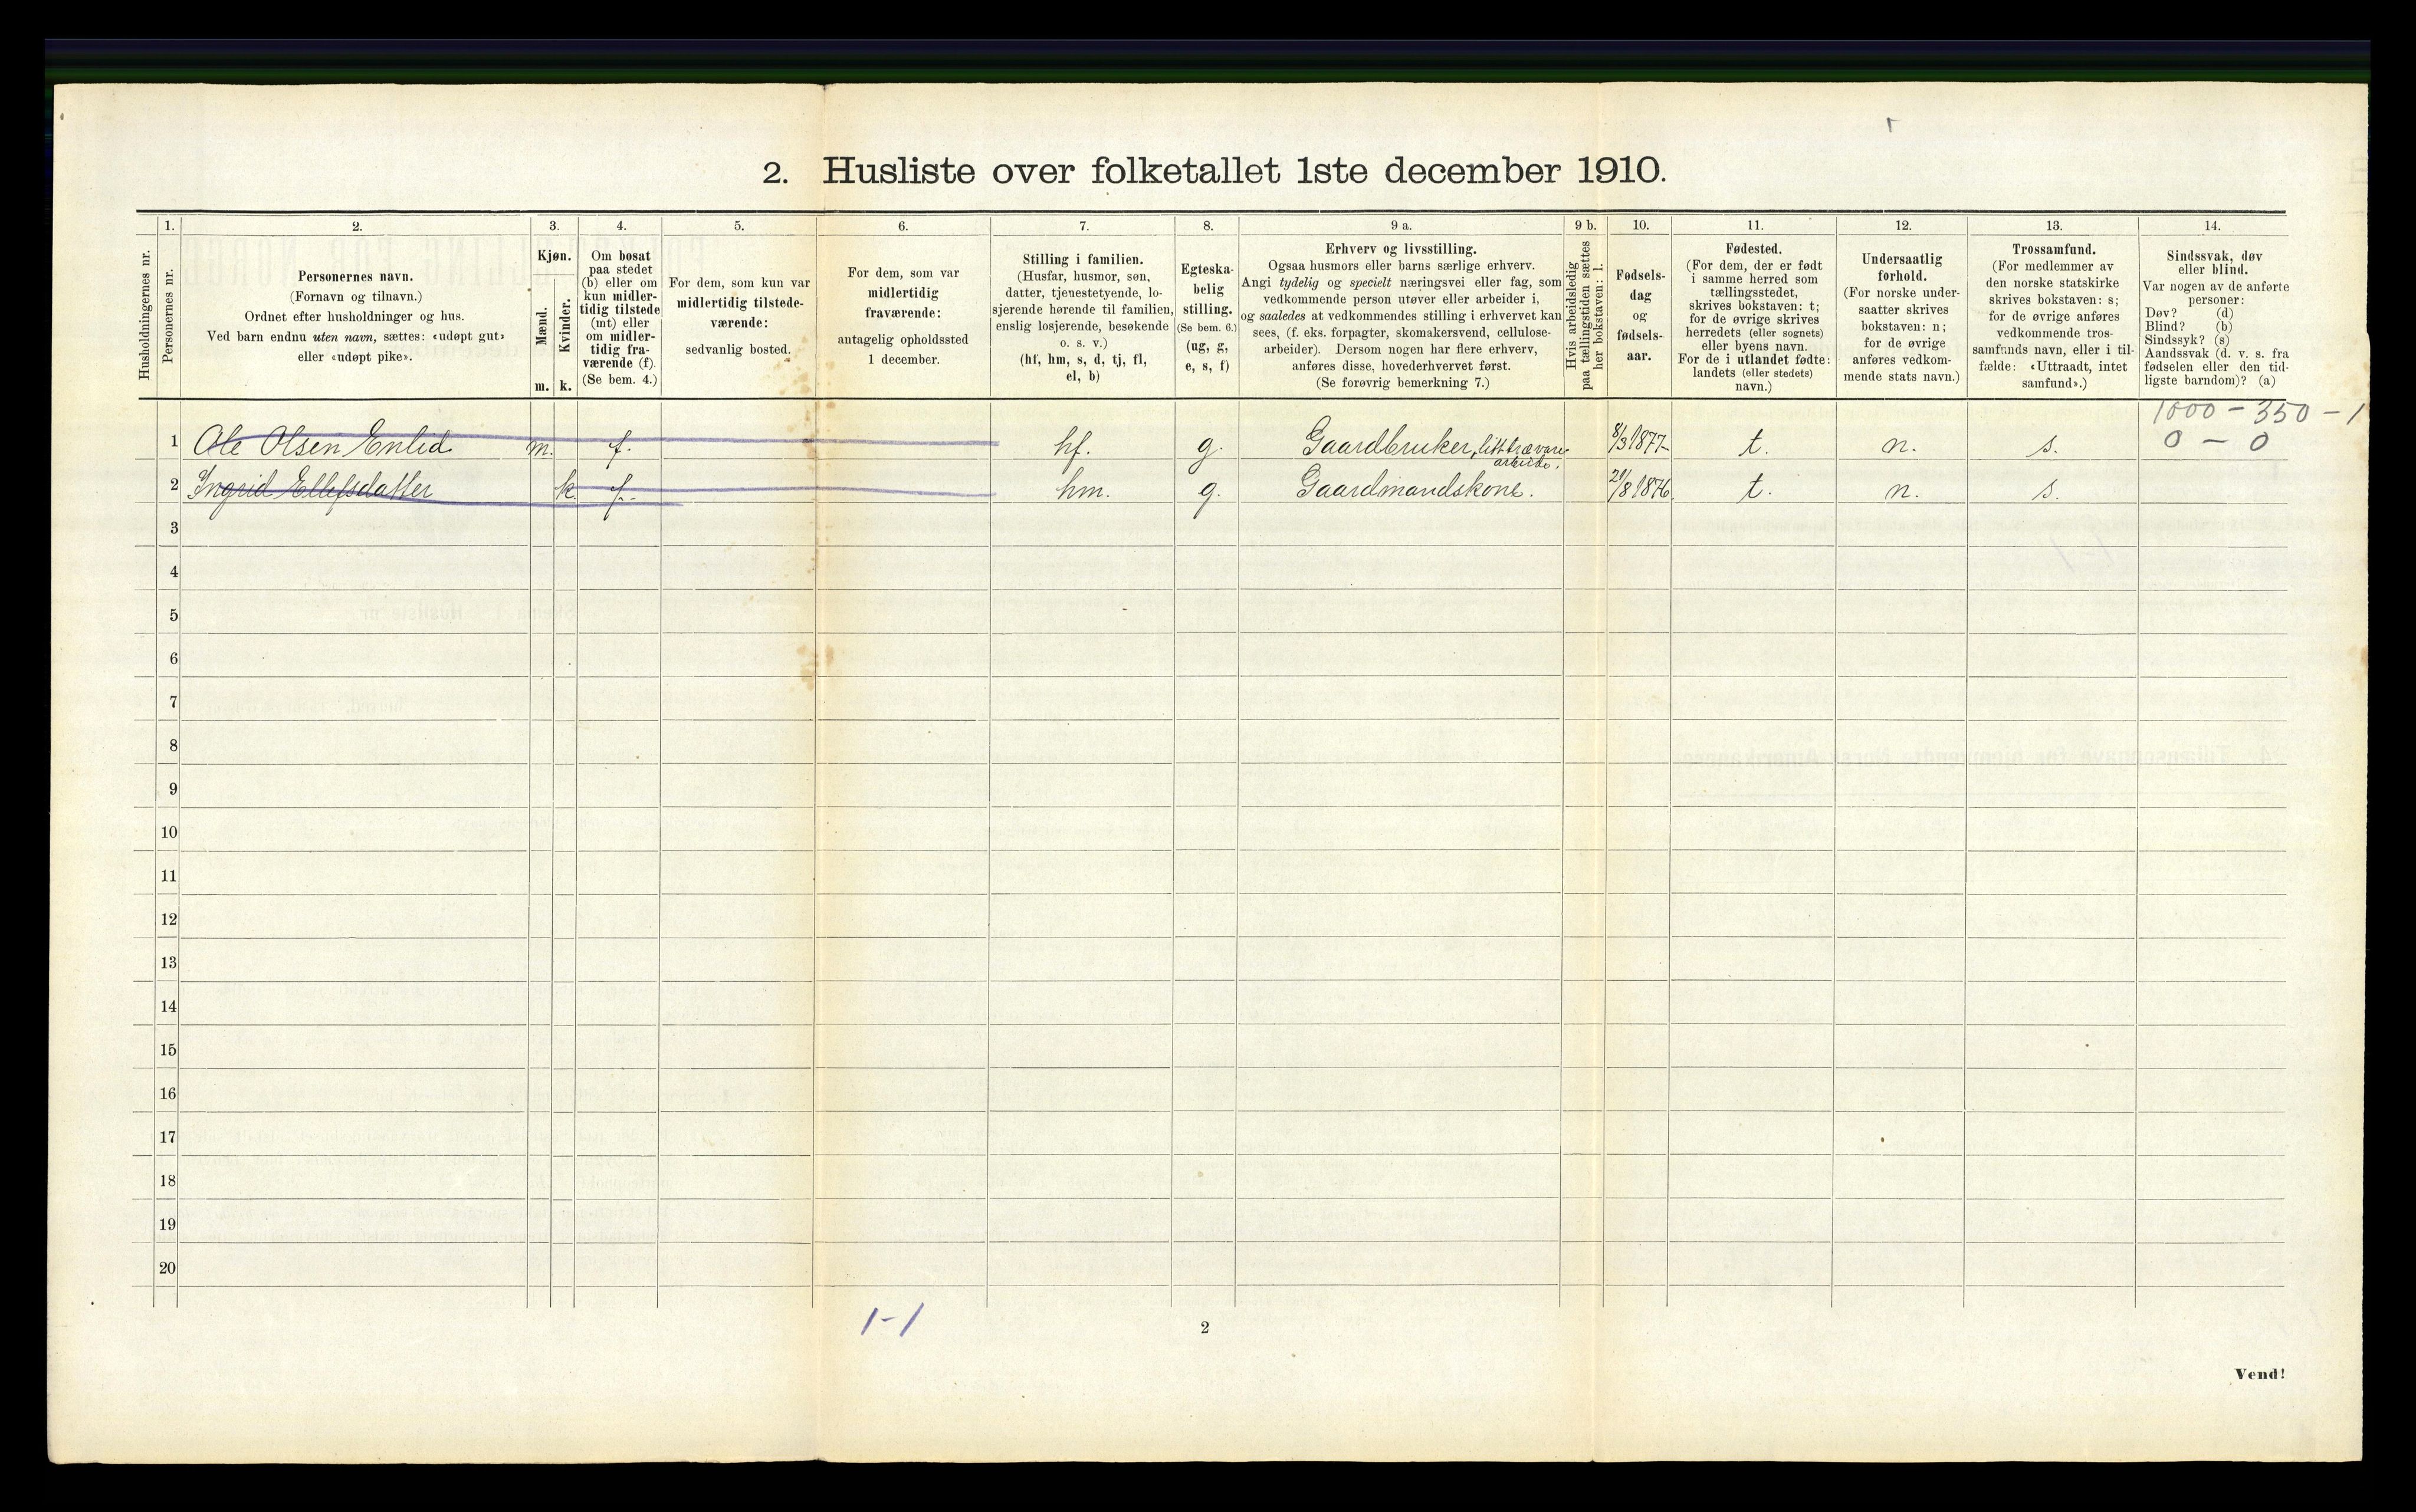 2. Husliste over folketallet 1ste december 1910.
Husholdningernes nr.
1.
Personernes nr.
2.
Personernes navn.
(Fornavn og tilnavn.)
Ordnet efter husholdninger og hus.
Ved barn endnu uten navn, sættes: «udøpt gut»
eller «udøpt pike».
3.
Kjøn.
Mænd.
m.
Kvinder.
k.
4.
Om bosat
paa stedet
(b) eller om
kun midler-
tidig tilstede
(mt) eller
om midler-
tidig fra-
værende (f).
(Se bem. 4.)
5.
For dem, som kun var
midlertidig tilstede-
værende:
sedvanlig bosted.
6.
For dem, som var
midlertidig
fraværende:
antagelig opholdssted
1 december.
7.
Stilling i familien.
(Husfar, husmor, søn,
datter, tjenestetyende, lo-
sjerende hørende til familien,
enslig losjerende, besøkende
o. s. v.)
(hf, hm, s, d, tj, fl,
el, b)
8.
Egteska-
belig
stilling.
(Se bem. 6.)
(ug, g,
e, s, f)
9 a.
Erhverv og livsstilling.
Ogsaa husmors eller barns særlige erhverv.
Angi tydelig og specielt næringsvei eller fag, som
vedkommende person utøver eller arbeider i,
og saaledes at vedkommendes stilling i erhvervet kan
sees, (f. eks. forpagter, skomakersvend, cellulose-
arbeider). Dersom nogen har flere erhverv,
anføres disse, hovederhvervet først.
(Se forøvrig bemerkning 7.)
9 b.
Hvis arbeidsledig
paa tællingstiden sættes
her bokstaven: l.
10.
Fødsels-
dag
og
fødsels-
aar.
11.
Fødested.
(For dem, der er født
i samme herred som
tællingsstedet,
skrives bokstaven: t;
for de øvrige skrives
herredets (eller sognets)
eller byens navn.
For de i utlandet fødte:
landets (eller stedets)
navn.)
12.
Undersaatlig
forhold.
(For norske under-
saatter skrives
bokstaven: n;
for de øvrige
anføres vedkom-
mende stats navn.)
13.
Trossamfund.
(For medlemmer av
den norske statskirke
skrives bokstaven: s;
for de øvrige anføres
vedkommende tros-
samfunds navn, eller i til-
fælde: «Uttraadt, intet
samfund».)
14.
Sindssvak, døv
eller blind.
Var nogen av de anførte
personer:
Døv? (d)
Blind? (b)
Sindssyk? (s)
Aandssvak (d. v. s. fra
fødselen eller den tid-
ligste barndom)? (a)
1000 - 350 - 1
0 - 0
1 Ole Olsen Enlid m. f. hf. g. Gaardbruker, litt trævare- 8/3 1877 t. n. s.
arbeide.
2 Ingrid Ellefsdatter k f. hm. g. Gaardmandskone. 21/8 1876 t. n. s.
3
4
5
6
7
8
9
10
11
12
13
14
15
16
17
18
19
20
1-1
2
Vend!